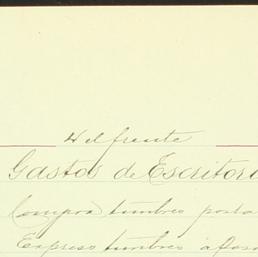 Del frente
Gastos de Escritor
Compra timbres posta
Expreso timbres